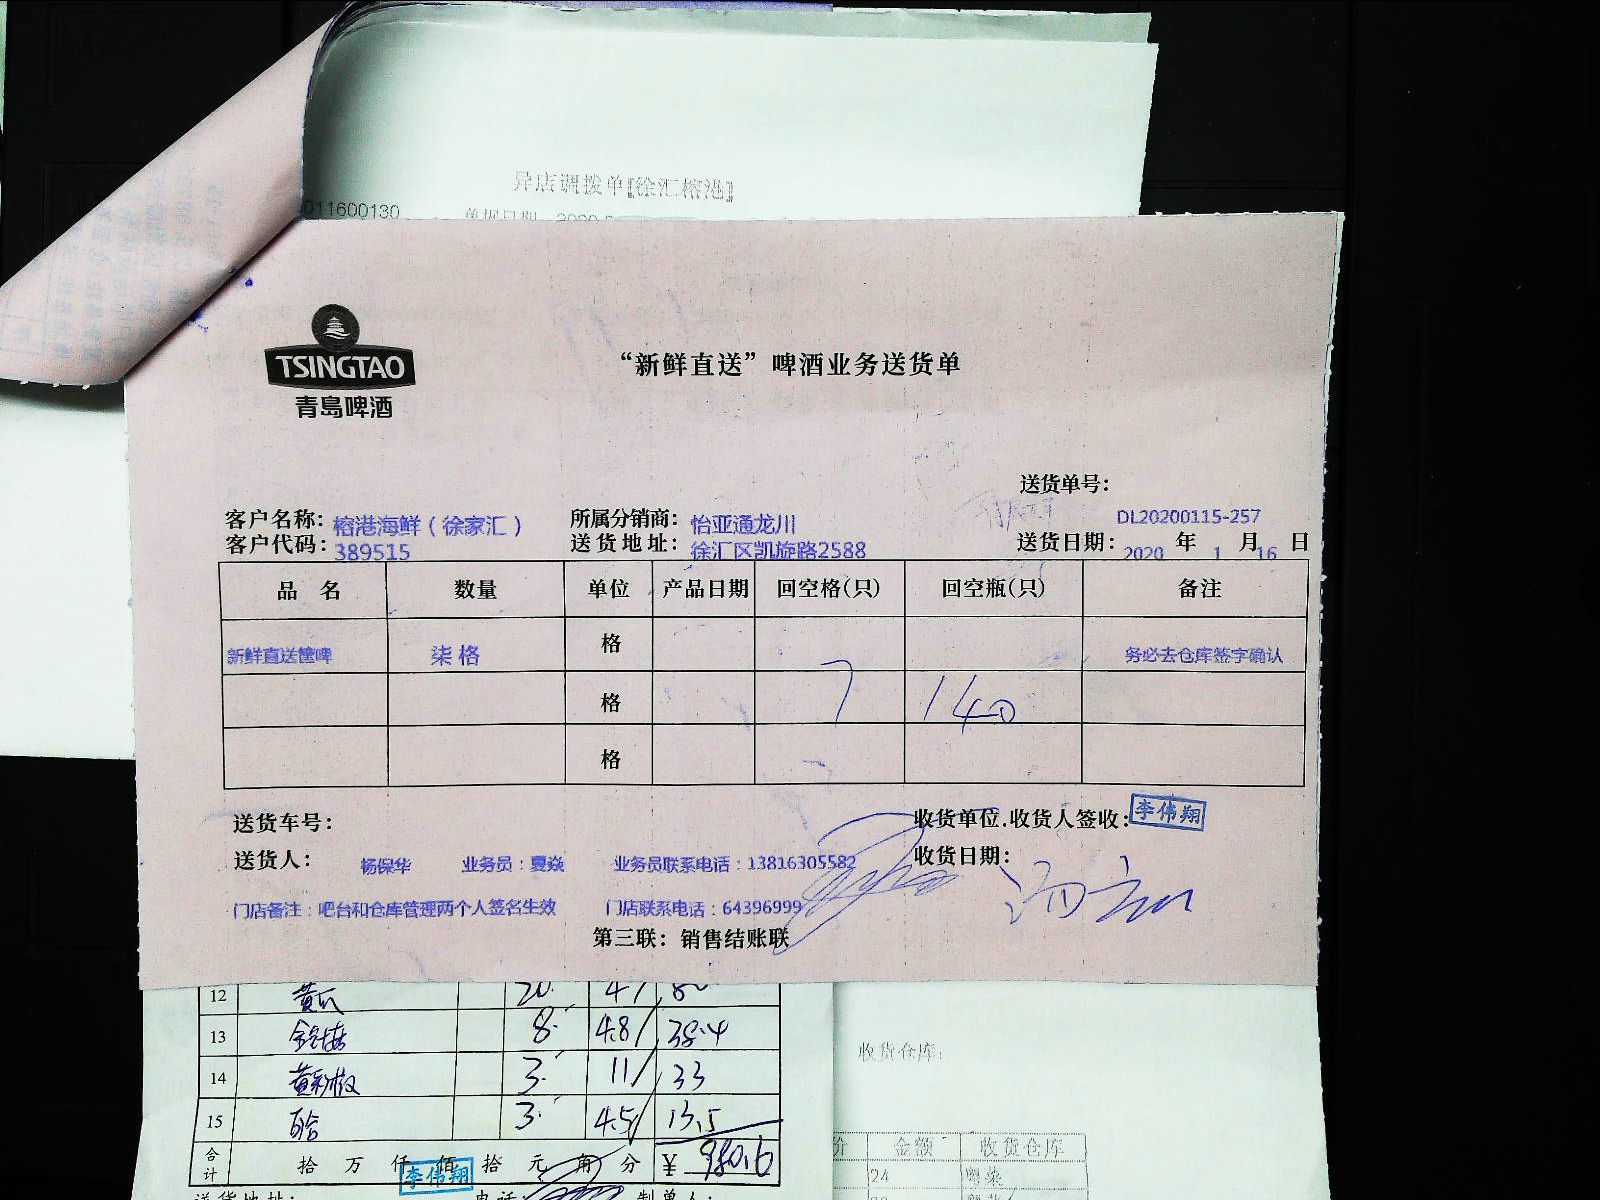 异店调拨单『徐汇榕港』
011600130
单据日期
TSINGTAO
青岛啤酒
“新鲜直送”啤酒业务送货单
送货单号：
DL20200115-257
客户名称：榕港海鲜（徐家汇） 所属分销商：怡亚通龙川
客户代码：389515 送货地址：徐汇区凯旋路2588 送货日期：2020 年 1 月 16 日
品名 数量 单位 产品日期 回空格(只) 回空瓶(只) 备注
新鲜直送筐啤 柒格 格 务必去仓库签字确认
格 7 140
格
送货车号： 收货单位.收货人签收：李伟翔
送货人： 杨保华 业务员：夏焱 业务员联系电话：13816305582 收货日期：
门店备注：吧台和仓库管理两个人签名生效 门店联系电话：64396999
第三联：销售结账联
12 黄瓜 20. 4 80
13 8. 4.8 38.4
收货仓库：
14 3. 11 33
15 百合 3. 4.5 13.5
合计 拾 万 仟 佰 拾 元 角 分 ¥ 980.6
李伟翔
价 金额 收货仓库
24 粤菜
送货地址： 电话： 制单人：